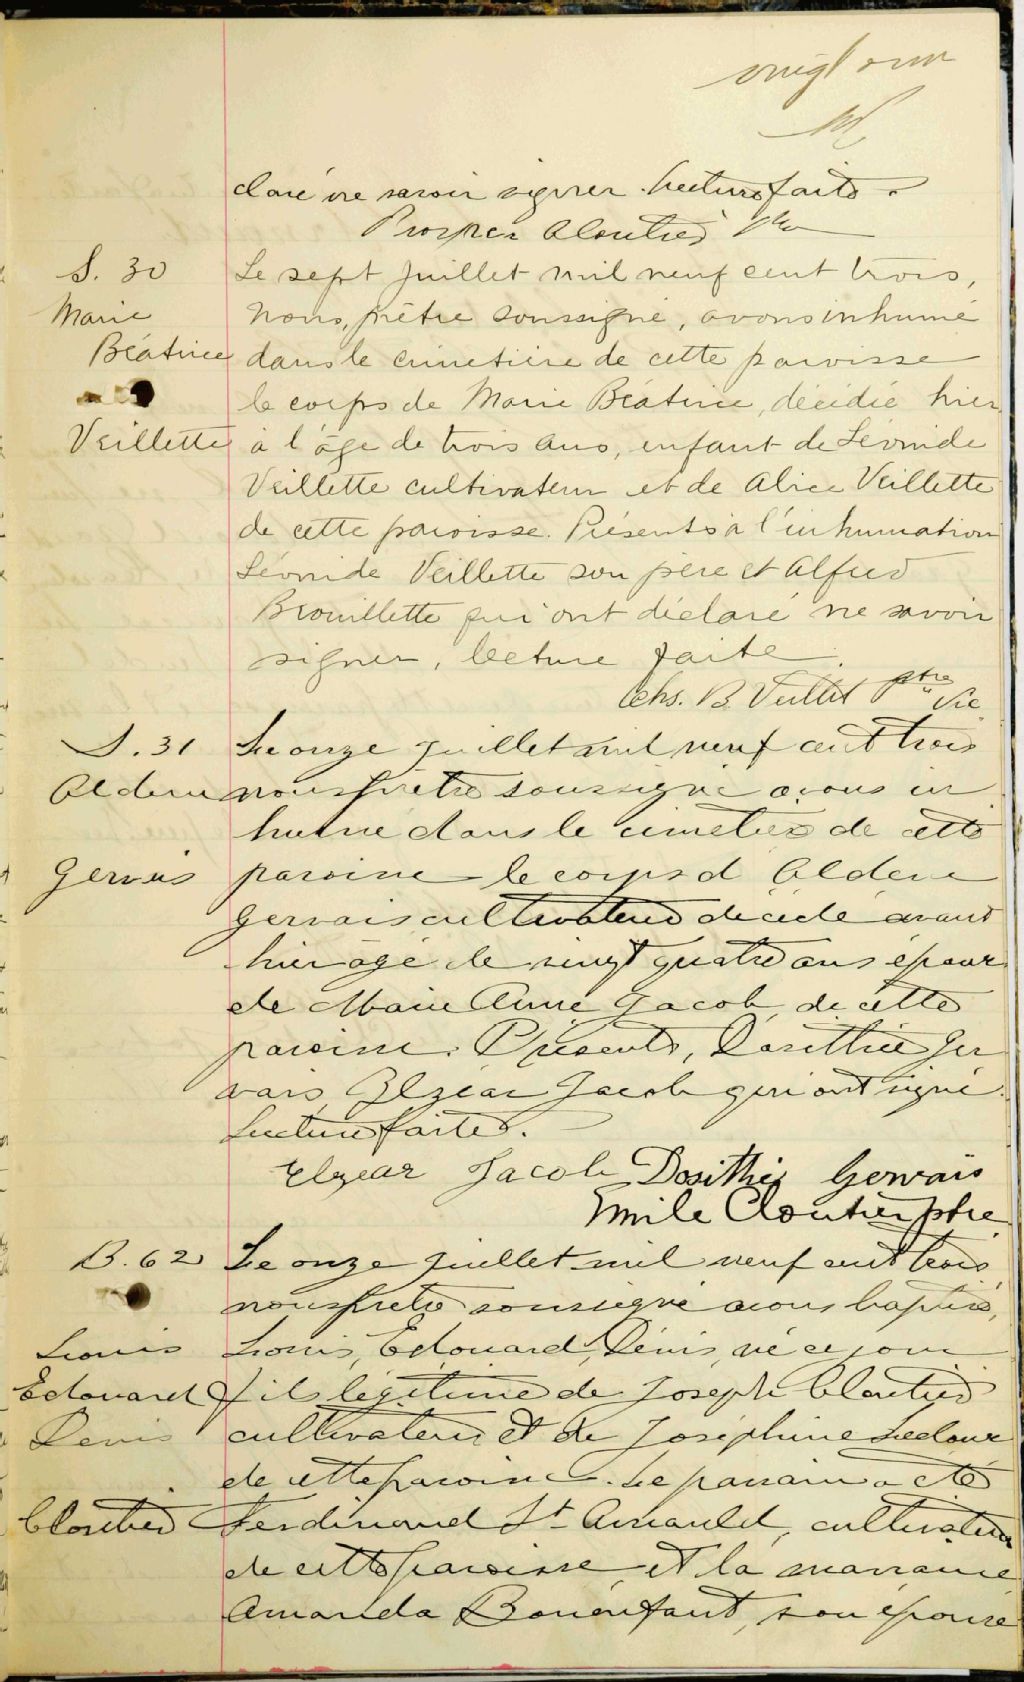 vingt onz
claré ne savoir signer. Lecture faite.
Prosper Cloutier Ptre
S. 30
Marie
Béatrice
Veillette
Le sept Juillet mil neuf cent trois,
Nous, prêtre soussigné, avons inhumé
dans le cimetière de cette paroisse
le corps de Marie Béatrice, décédée hier
à l'âge de trois ans, enfant de Léonide
Veillette cultivateur et de Alice Veillette
de cette paroisse. Présents à l'inhumation
Léonide Veillette son père et Alfred
Brouillette qui ont déclaré ne savoir
signer, lecture faite.
Chs. B. Veillet ptre Vic
S. 31
Aldem
Gervais
Le onze juillet mil neuf cent trois
nous prêtre soussigné avons in
humé dans le cimetière de cette
paroisse le corps d'
Gervais cultivateur décédé avant
hier âgé de vingt quatre ans époux
de Marie Anne Jacob de cette
paroisse. Présents, Dosithée Ger
vais, Elzéar Jacob qui ont signé.
Lecture faite.
Elzear Jacob Dosithé Gervais
Emile Cloutier ptre
B. 62
Louis
Edouard
Denis
Cloutier
Le onze juillet mil neuf cent trois
nous prêtre soussigné avons baptisé,
Louis, Edouard, Denis, né ce jour
fils légitime de Joseph Cloutier
cultivateur et de Joséphine Ledoux
de cette paroisse. Le parrain a été
Ferdinand St-Arnauld, cultivateur
de cette paroisse, et la marraine
Amanda Bonenfant, son épouse